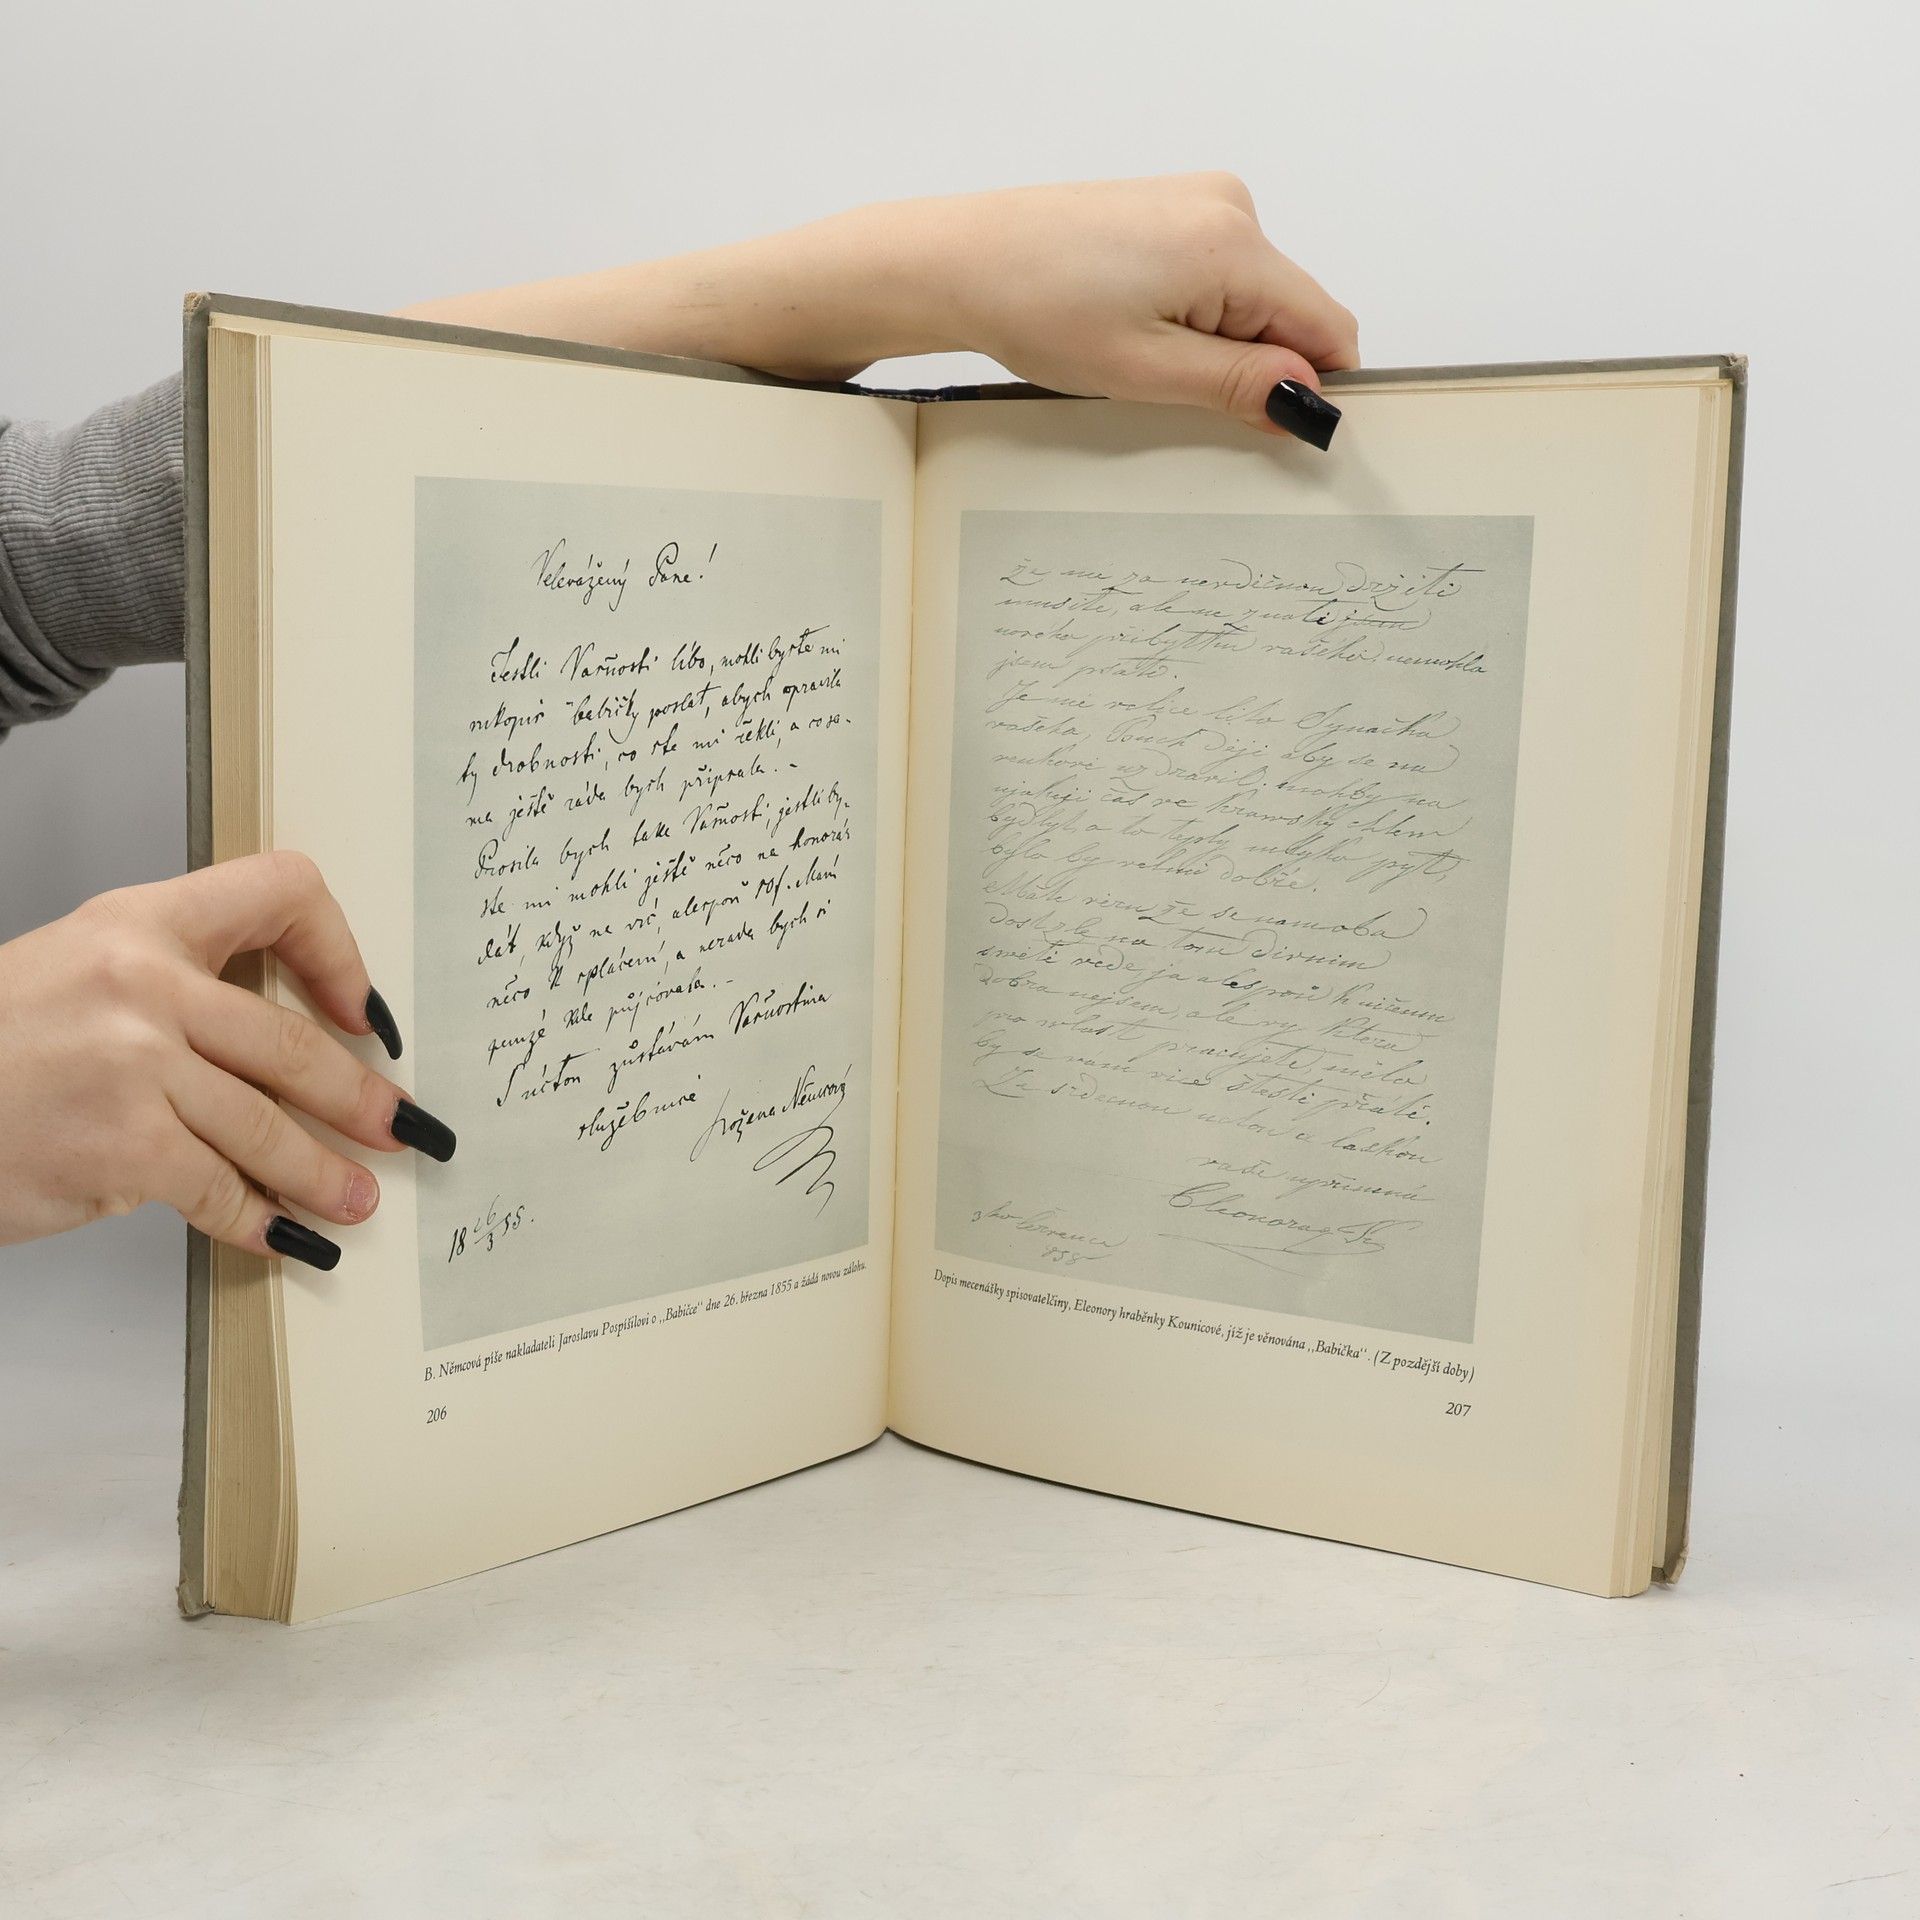 Velevážený Pane!
Jestli Vašnosti libo, mohli byste mi
rukopis babičky poslat, abych opravila
ty drobnosti, co ste mi řekli, a co sa-
ma ještě ráda bych připsala. –
Prosila bych take Vašnosti, jestli by-
ste mi mohli ještě něco na honorár
dát, když ne víc, alespoň 50f. Mám
něco k splácení, a nerada bych si
peníze kde půjčovala. –
S úctou zůstávám Vašnostina
služebnice
Božena Němcová
18 26/3 55.
B. Němcová píše nakladateli Jaroslavu Pospíšilovi o „Babičce" dne 26. března 1855 a žádá novou zálohu.
206
že mě za nevdičnou držeti
musíte, ale ne znati jsem
nemohla
jsem psáti.
Je mě velice líto Synáčka
vašeho, Buch dějž aby se na
venkově uzdravil. mohby na
nějaký čas ve
bydlyt, a to teply mlyko pyt,
bylo by velmi dobře.
Máte víru že se nam oba
dost zle na tom divnim
světě vede, ja alespoň k ničemu
dobra nejsem, ale vy ktera
pro vlast pracujete, mělo
by se vám více štěstí přáti.
Za srdecnou
vaše upřimná
Eleonora
858
Dopis mecenášky spisovatelčiny, Eleonory hraběnky Kounicové, jíž je věnována „Babička". (Z pozdější doby)
207